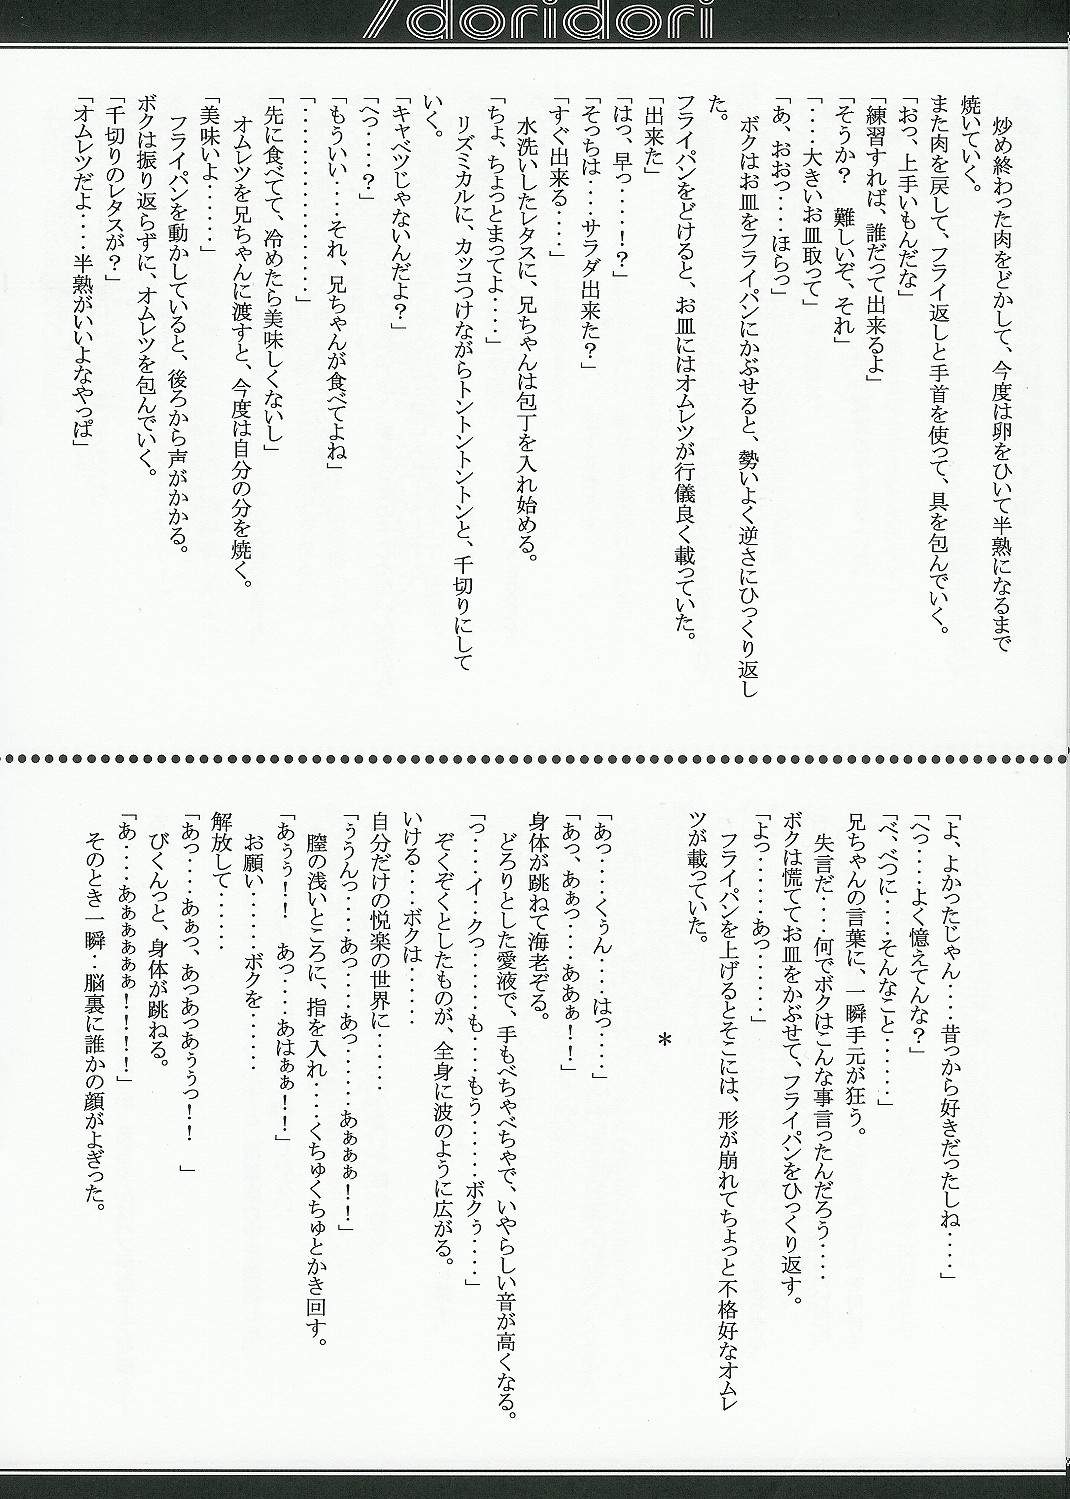 /doridori
炒め終わった肉をどかして、今度は卵をひいて半熟になるまで
焼いていく。
また肉を戻して、フライ返しと手首を使って、具を包んでいく。
「おっ、上手いもんだな」
「練習すれば、誰だって出来るよ」
「そうか？　難しいぞ、それ」
「‥‥大きいお皿取って」
「あ、おおっ‥‥ほらっ」
ボクはお皿をフライパンにかぶせると、勢いよく逆さにひっくり返し
た。
フライパンをどけると、お皿にはオムレツが行儀良く載っていた。
「出来た」
「はっ、早っ‥‥！？」
「そっちは‥‥サラダ出来た？」
「すぐ出来る‥‥」
水洗いしたレタスに、兄ちゃんは包丁を入れ始める。
「ちょ、ちょっとまってよ‥‥」
リズミカルに、カッコつけながらトントントントンと、千切りにして
いく。
「キャベツじゃないんだよ？」
「へっ‥‥？」
「もういい‥‥それ、兄ちゃんが食べてよね」
「‥‥‥‥‥‥‥‥」
「先に食べてて、冷めたら美味しくないし」
オムレツを兄ちゃんに渡すと、今度は自分の分を焼く。
「美味いよ‥‥‥」
フライパンを動かしていると、後ろから声がかかる。
ボクは振り返らずに、オムレツを包んでいく。
「千切りのレタスが？」
「オムレツだよ‥‥半熟がいいよなやっぱ」
「よ、よかったじゃん‥‥昔っから好きだったしね‥‥」
「へっ‥‥よく憶えてんな？」
「べ、べつに‥‥そんなこと‥‥‥」
兄ちゃんの言葉に、一瞬手元が狂う。
失言だ‥‥何でボクはこんな事言ったんだろう‥‥
ボクは慌ててお皿をかぶせて、フライパンをひっくり返す。
「よっ‥‥‥あっ‥‥‥」
フライパンを上げるとそこには、形が崩れてちょっと不格好なオムレ
ツが載っていた。
＊
「あっ‥‥くぅん‥‥はっ‥‥」
「あっ、あぁっ‥‥ああぁ！！」
身体が跳ねて海老ぞる。
どろりとした愛液で、手もべちゃべちゃで、いやらしい音が高くなる。
「っ‥‥イ‥クっ‥‥‥も‥‥もう‥‥‥ボクぅ‥‥」
ぞくぞくとしたものが、全身に波のように広がる。
いける‥‥ボクは‥‥‥
自分だけの悦楽の世界に‥‥‥
「ぅうんっ‥‥あっ‥‥あっ‥‥‥あぁぁぁ！！」
膣の浅いところに、指を入れ‥‥くちゅくちゅとかき回す。
「あぅぅ！！　あっ‥‥あはぁぁ！！」
お願い‥‥‥ボクを‥‥‥
解放して‥‥‥
「あっ‥‥あぁっ、あっあっあぅぅっ！！　」
びくんっと、身体が跳ねる。
「あ‥‥あぁぁぁぁぁ！！！！」
そのとき一瞬‥脳裏に誰かの顔がよぎった。